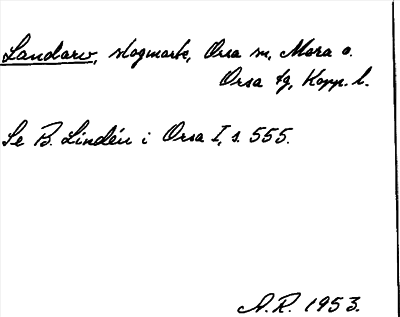 Landarv, skogmark, Orsa sn, Mora o.
Orsa tg, Kopp. l.
Se B. Lindén i Orsa I, s. 555.
A.R. 1953.